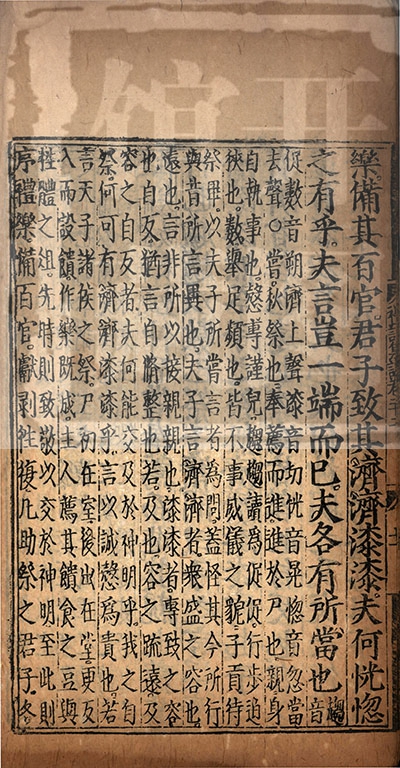 樂備其百官君子致其濟濟漆漆夫何恍惚
之有乎夫言豈一端而已夫各有所當也趨音
促數音朔濟上聲漆音切恍音晃惚音忽當
去聲○嘗秋祭也奉薦而進進於尸也親身
自執事也慤專謹皃趨趨讀為促促行步迫
狹也數舉足頻也皆不事威儀之貌子貢待
祭畢以夫子所言者為問蓋怪其今所行
與昔所言異也夫子言濟濟者衆盛之容也
遠也言非所以接親親也漆漆者專致之容
也自反猶言自脩整也若及也容之疏遠及
容之自反者夫何能交及於神明乎我之自
祭何可有濟濟漆漆乎言以誠慤為貴也若
言天子諸侯之祭尸初在室後出在堂更反
入而設饋作樂既成主人薦其饋食之豆與
牲體之俎先時則致敬以交於神明至此則
序禮樂備百官獻酬往復凡助祭之君子各